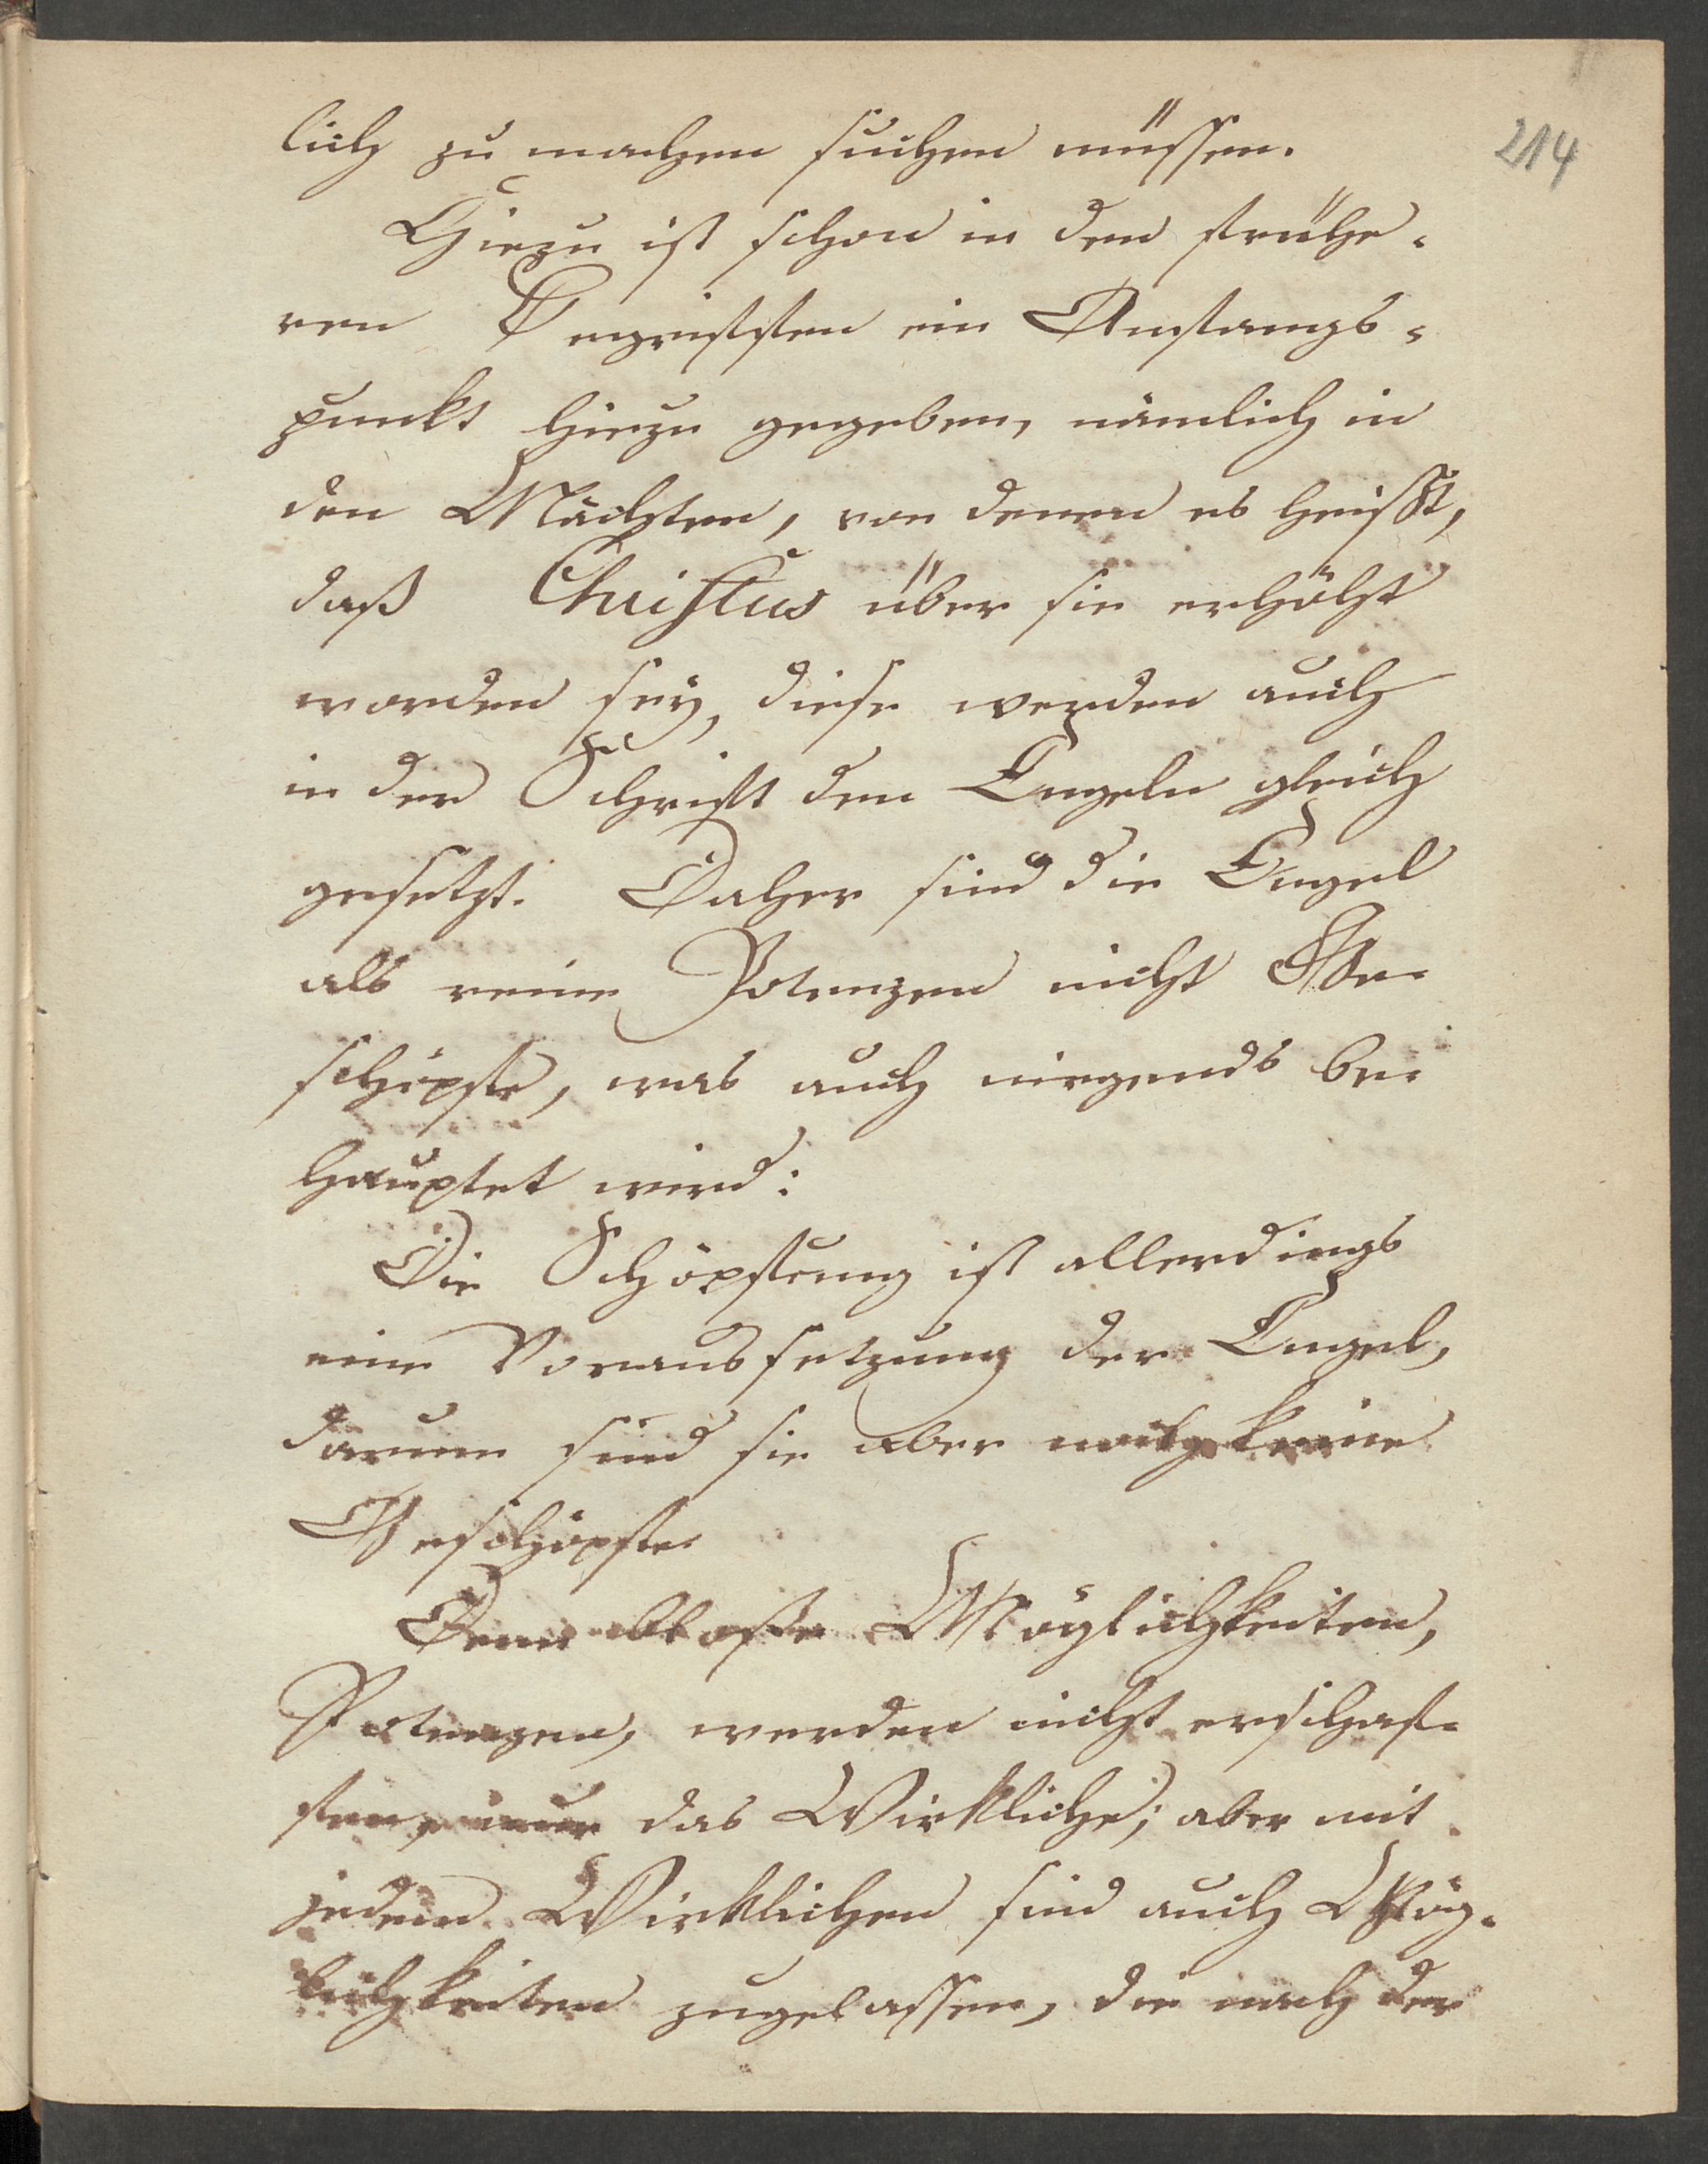 214
lich zu machen suchen müssen.
Hiezu ist schon in den frühe-
ren Begriffen ein Anfangs-
punkt hiezu gegeben, nämlich in
den Mächten, von denen es heißt,
daß Christus über sie erhöht
worden sey, diese werden auch
in der Schrift den Engeln gleich
gesetzt. Daher sind die Engel
als reine Potenzen nicht Ge-
schöpfe, was auch nirgends be-
hauptet wird:
Die Schöpfung ist allerdings
eine Voraussetzung der Engel,
darum sind sie aber noch keine
Geschöpfe.
Denn bloße Möglichkeiten,
Potenzen, werden nicht erschaf-
fen, nur das Wirkliche; aber mit
jedem Wirklichen sind auch Mög-
lichkeiten zugelassen, die nach der